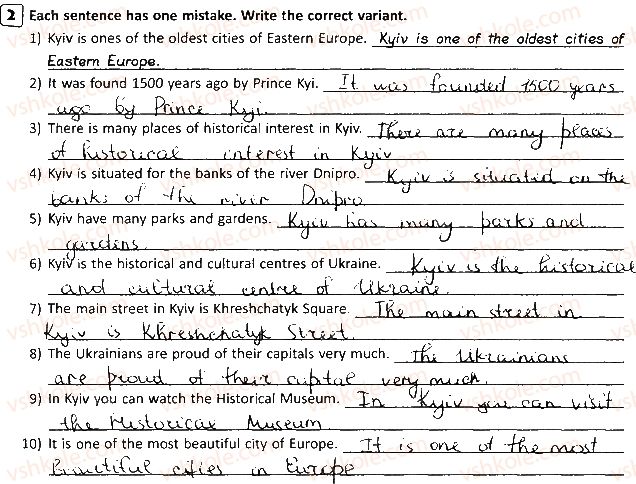 2 Each sentence has one mistake. Write the correct variant.
1) Kyiv is ones of the oldest cities of Eastern Europe. Kyiv is one of the oldest cities of
Eastern Europe.
2) It was found 1500 years ago by Prince Kyi. It was founded 1500 years
ago by Prince Kyi.
3) There is many places of historical interest in Kyiv. There are many places
of historical interest in Kyiv
4) Kyiv is situated for the banks of the river Dnipro. Kyiv is situated on the
banks of the river Dnipro
5) Kyiv have many parks and gardens. Kyiv has many parks and
gardens.
6) Kyiv is the historical and cultural centres of Ukraine. Kyiv is the historical
and cultural centre of Ukraine.
7) The main street in Kyiv is Khreshchatyk Square. The main street in
Kyiv is Khreshchatyk Street.
8) The Ukrainians are proud of their capitals very much. The Ukrainians
are proud of their capital very much.
9) In Kyiv you can watch the Historical Museum. In Kyiv you can visit
the Historical Museum.
10) It is one of the most beautiful city of Europe. It is one of the most
beautiful cities in Europe